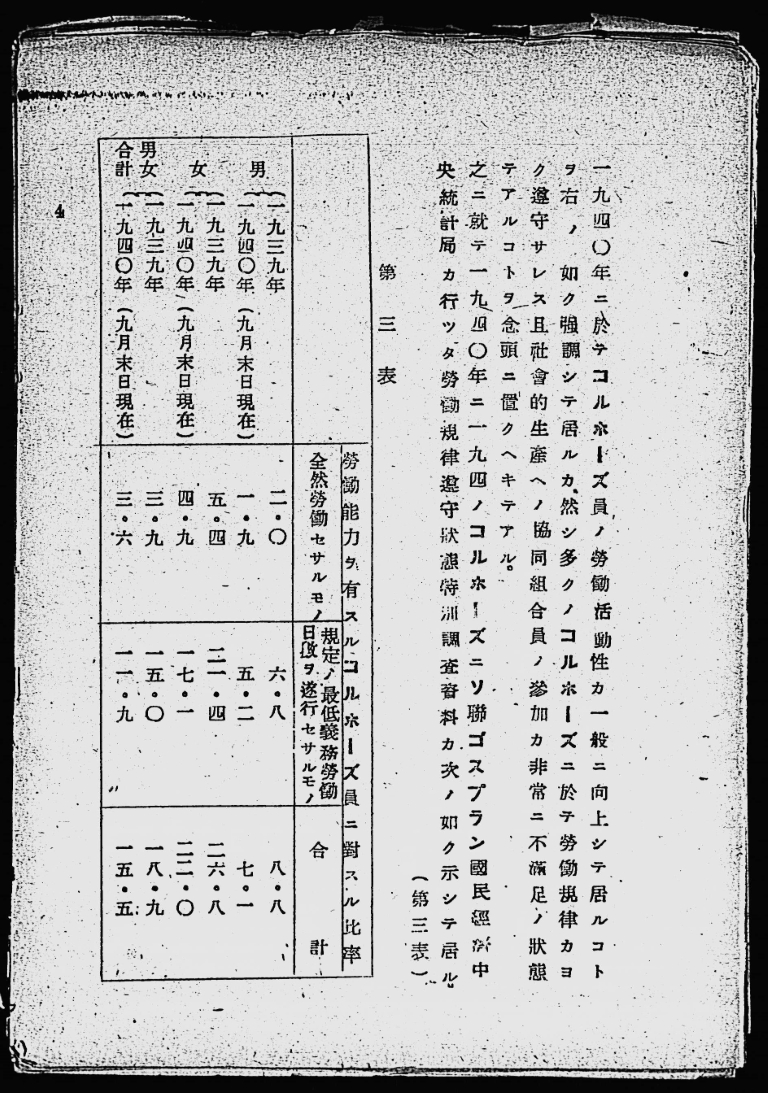 一九四〇年ニ於テコルホーズ員ノ勞働活動性カ一般ニ向上シテ居ルコト
ヲ右ノ如ク強調シテ居ルカ、然シ多クノコルホーズニ於テ勞働規律カヨ
ク遵守サレス且社會的生產ヘノ協同組合員ノ參加カ非常ニ不滿足ノ狀態
テアルコトヲ念頭ニ置クヘキテアル。
之ニ就テ一九四〇年ニ一九四ノコルホーズニソ聯ゴスプラン國民經濟中
央統計局カ行ツタ勞働規律遵守狀態特別調査資料カ次ノ如ク示シテ居ル。
(第三表)
第三表
勞働能力ヲ有スルコルホーズ員ニ對スル比率
全然勞働セサルモノ
規定ノ最低義務勞働
日數ヲ遂行セサルモノ
合計
男
一九三九年 二・〇 六・八 八・八
一九四〇年(九月末日現在) 一・九 五・二 七・一
女
一九三九年 五・四 二一・四 二六・八
一九四〇年(九月末日現在) 四・九 一七・一 二二・〇
男女
合計
一九三九年 三・九 一五・〇 一八・九
一九四〇年(九月末日現在) 三・六 一一・九 一五・五
4